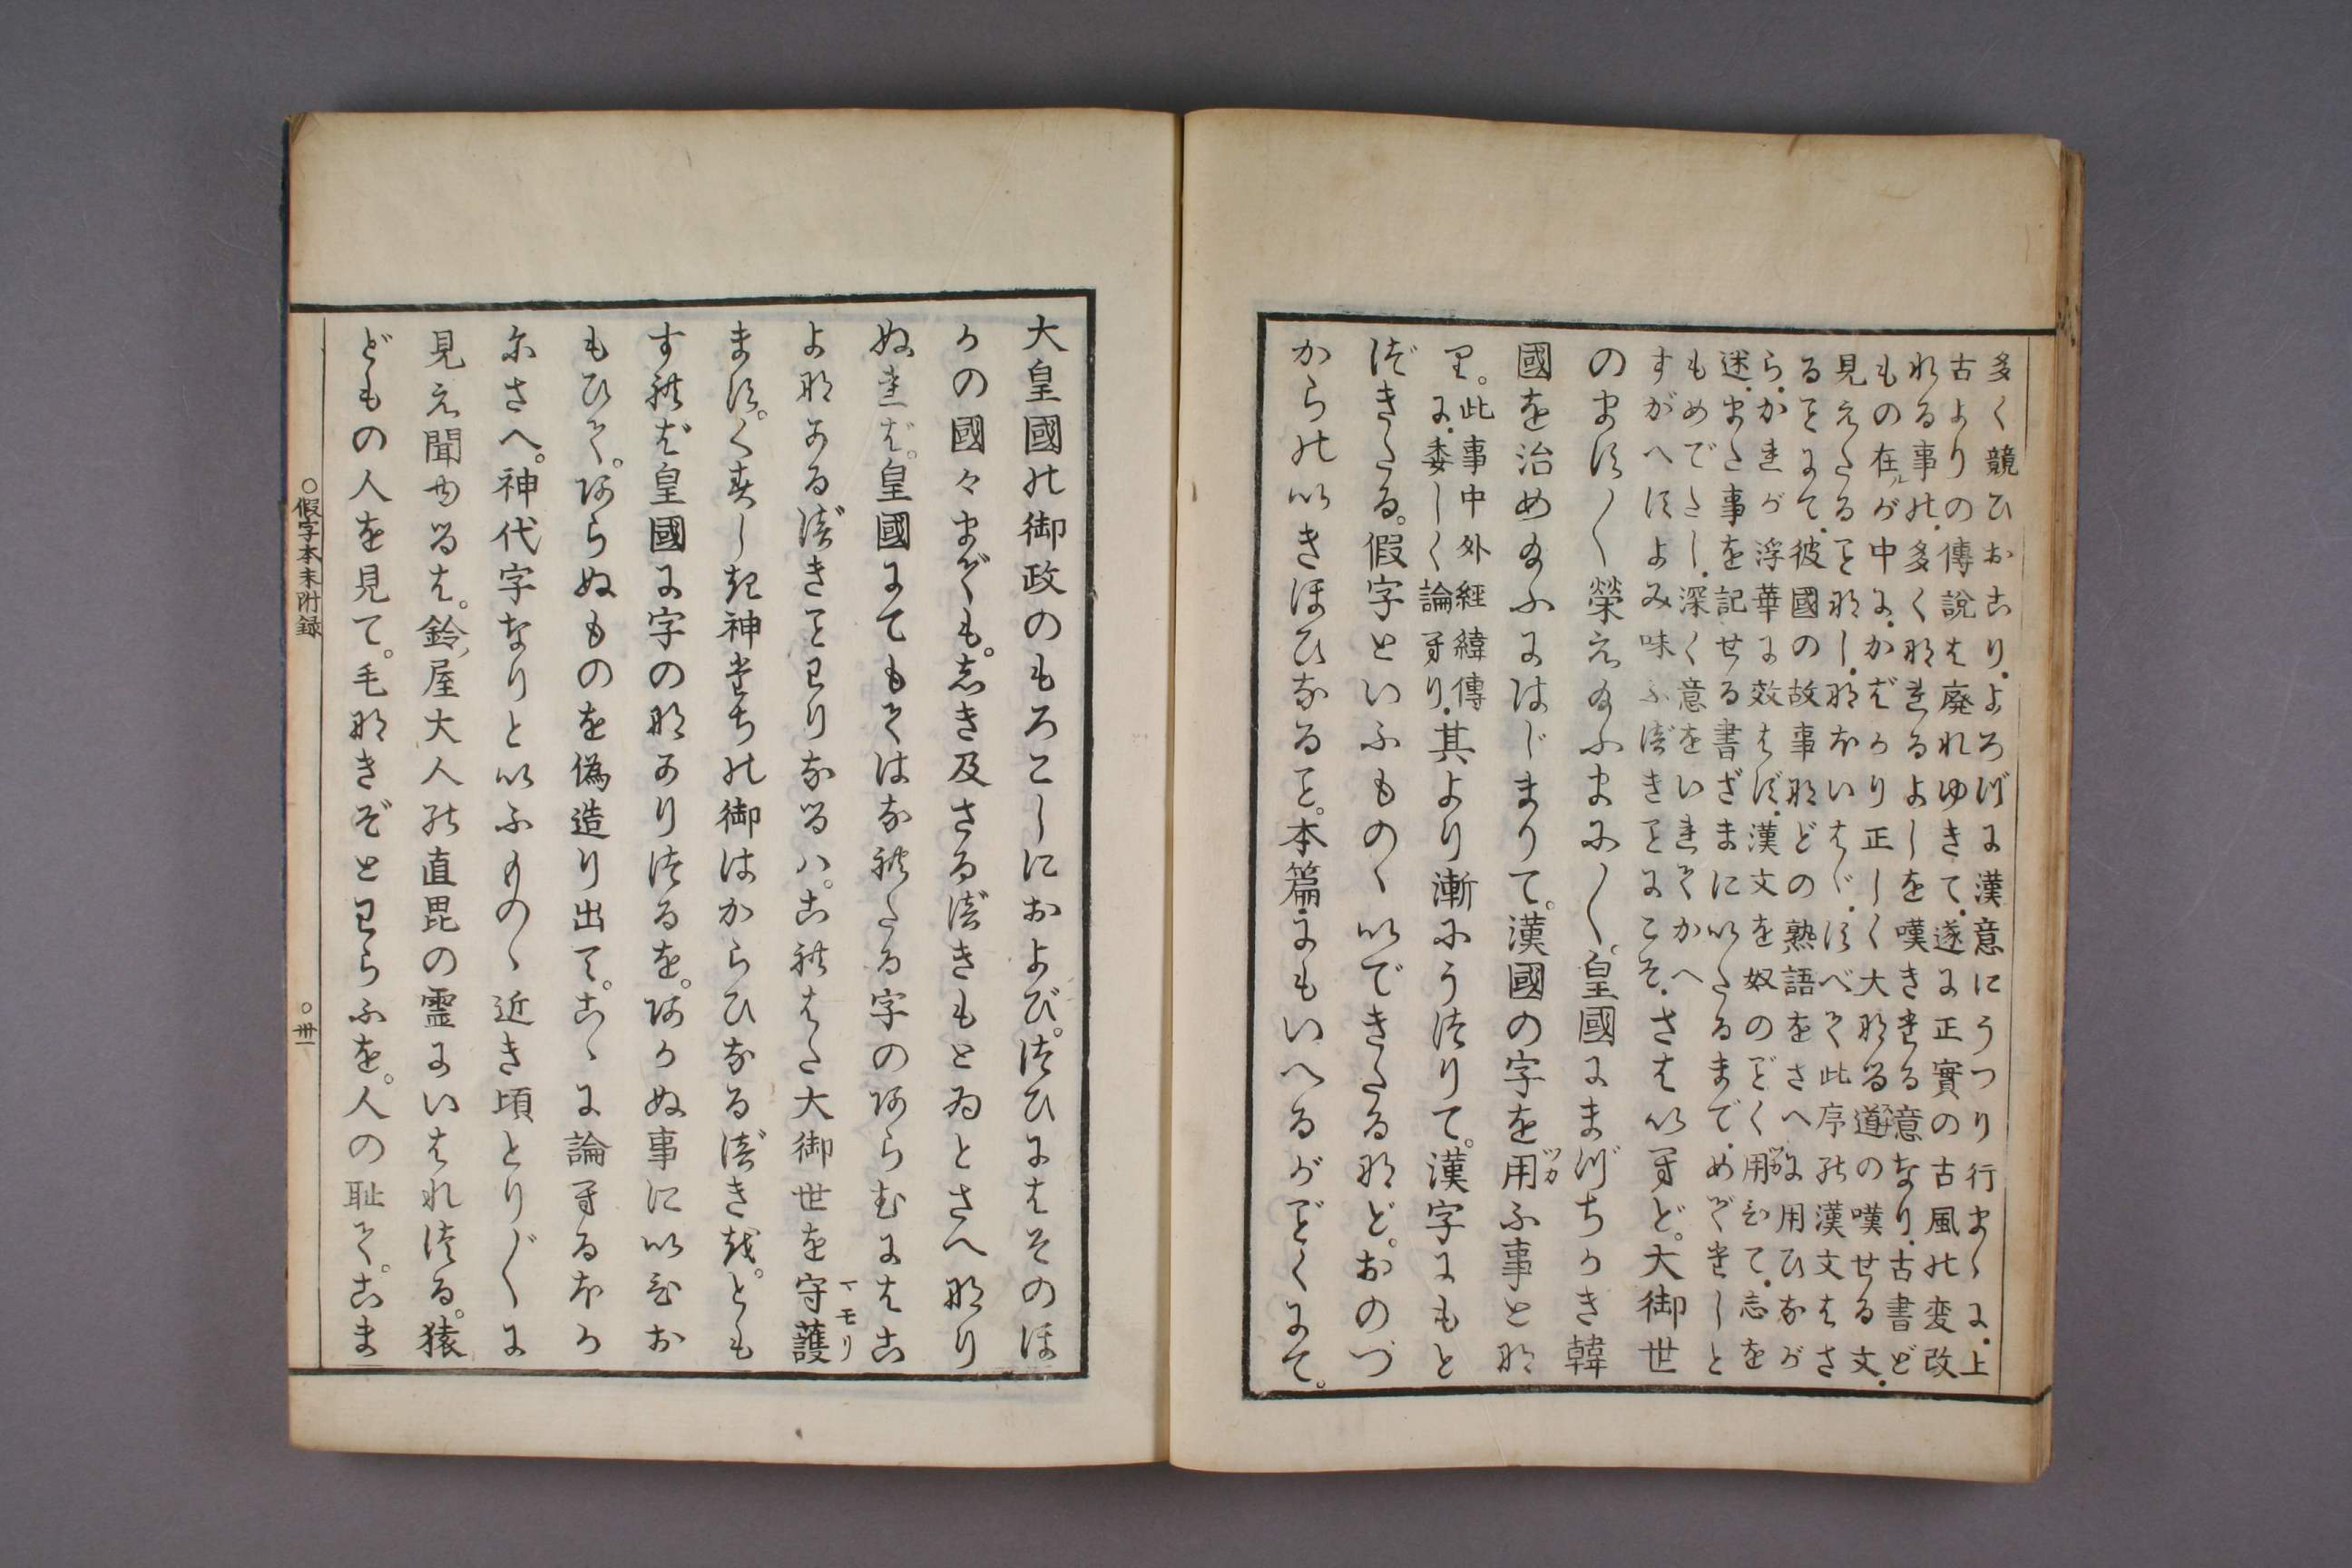 多く競ひおこり.よろづに漢意にうつり行まゝに.上
古よりの傳説は廃れゆきて.遂に正實の古風の変改
れる事の.多くなれるよしを嘆きたる意なり.古書ど
もの在ルが中に.かばかり正しく大なる道の嘆せる文.
見えたることなし.なほいはゞ.すべて此序の漢文はさ
ることにて.彼國の故事などの熟語をさへに用ひなが
ら.かれが浮華に效はず.漢文を奴のごく用ひて.志を
述.また事を記せる書ざまにいたるまで.めでたしと
もめでたし.深く意をいれてかへ
すがへすよみ味ふべきことにこそ.さはいへど。大御世
のます〳〵榮え給ふまに〳〵。皇國にまづちかき韓
國を治め給ふにはじまりて。漢國の字を用ふ事とな
れり。此事中外經緯傳
に.委しく論へり.其より漸にうつりて。漢字にもと
づきたる。假字といふものゝいできたるなど。おのづ
からのいきほひなること。本篇にもいへるがごくにて。
大皇國の御政のもろこしにおよび。つひにはそのほ
かの國々までも。しき及さるべきもとゐとさへなり
ぬれば。皇國にてもてはなれたる字のあらむにはこ
よなかるべきことわりなるハ。これはた大御世を守護
ます。くすしき神たちの御はからひなるべきを。とも
すればば皇國に字のなかりつるを。あかぬ事にいひお
もひて。あらぬものを偽造り出て。こゝに論へるほか
にさへ。神代字なりといふものゝ近き頃とり〴〵に
見え聞ゆるは。鈴ノ屋大人の直毘の霊にいはれつる。猿
どもの人を見て。毛なきぞとわらふを。人の恥て。こま
マモリ
ツカ
○假字本末附録
○卅一